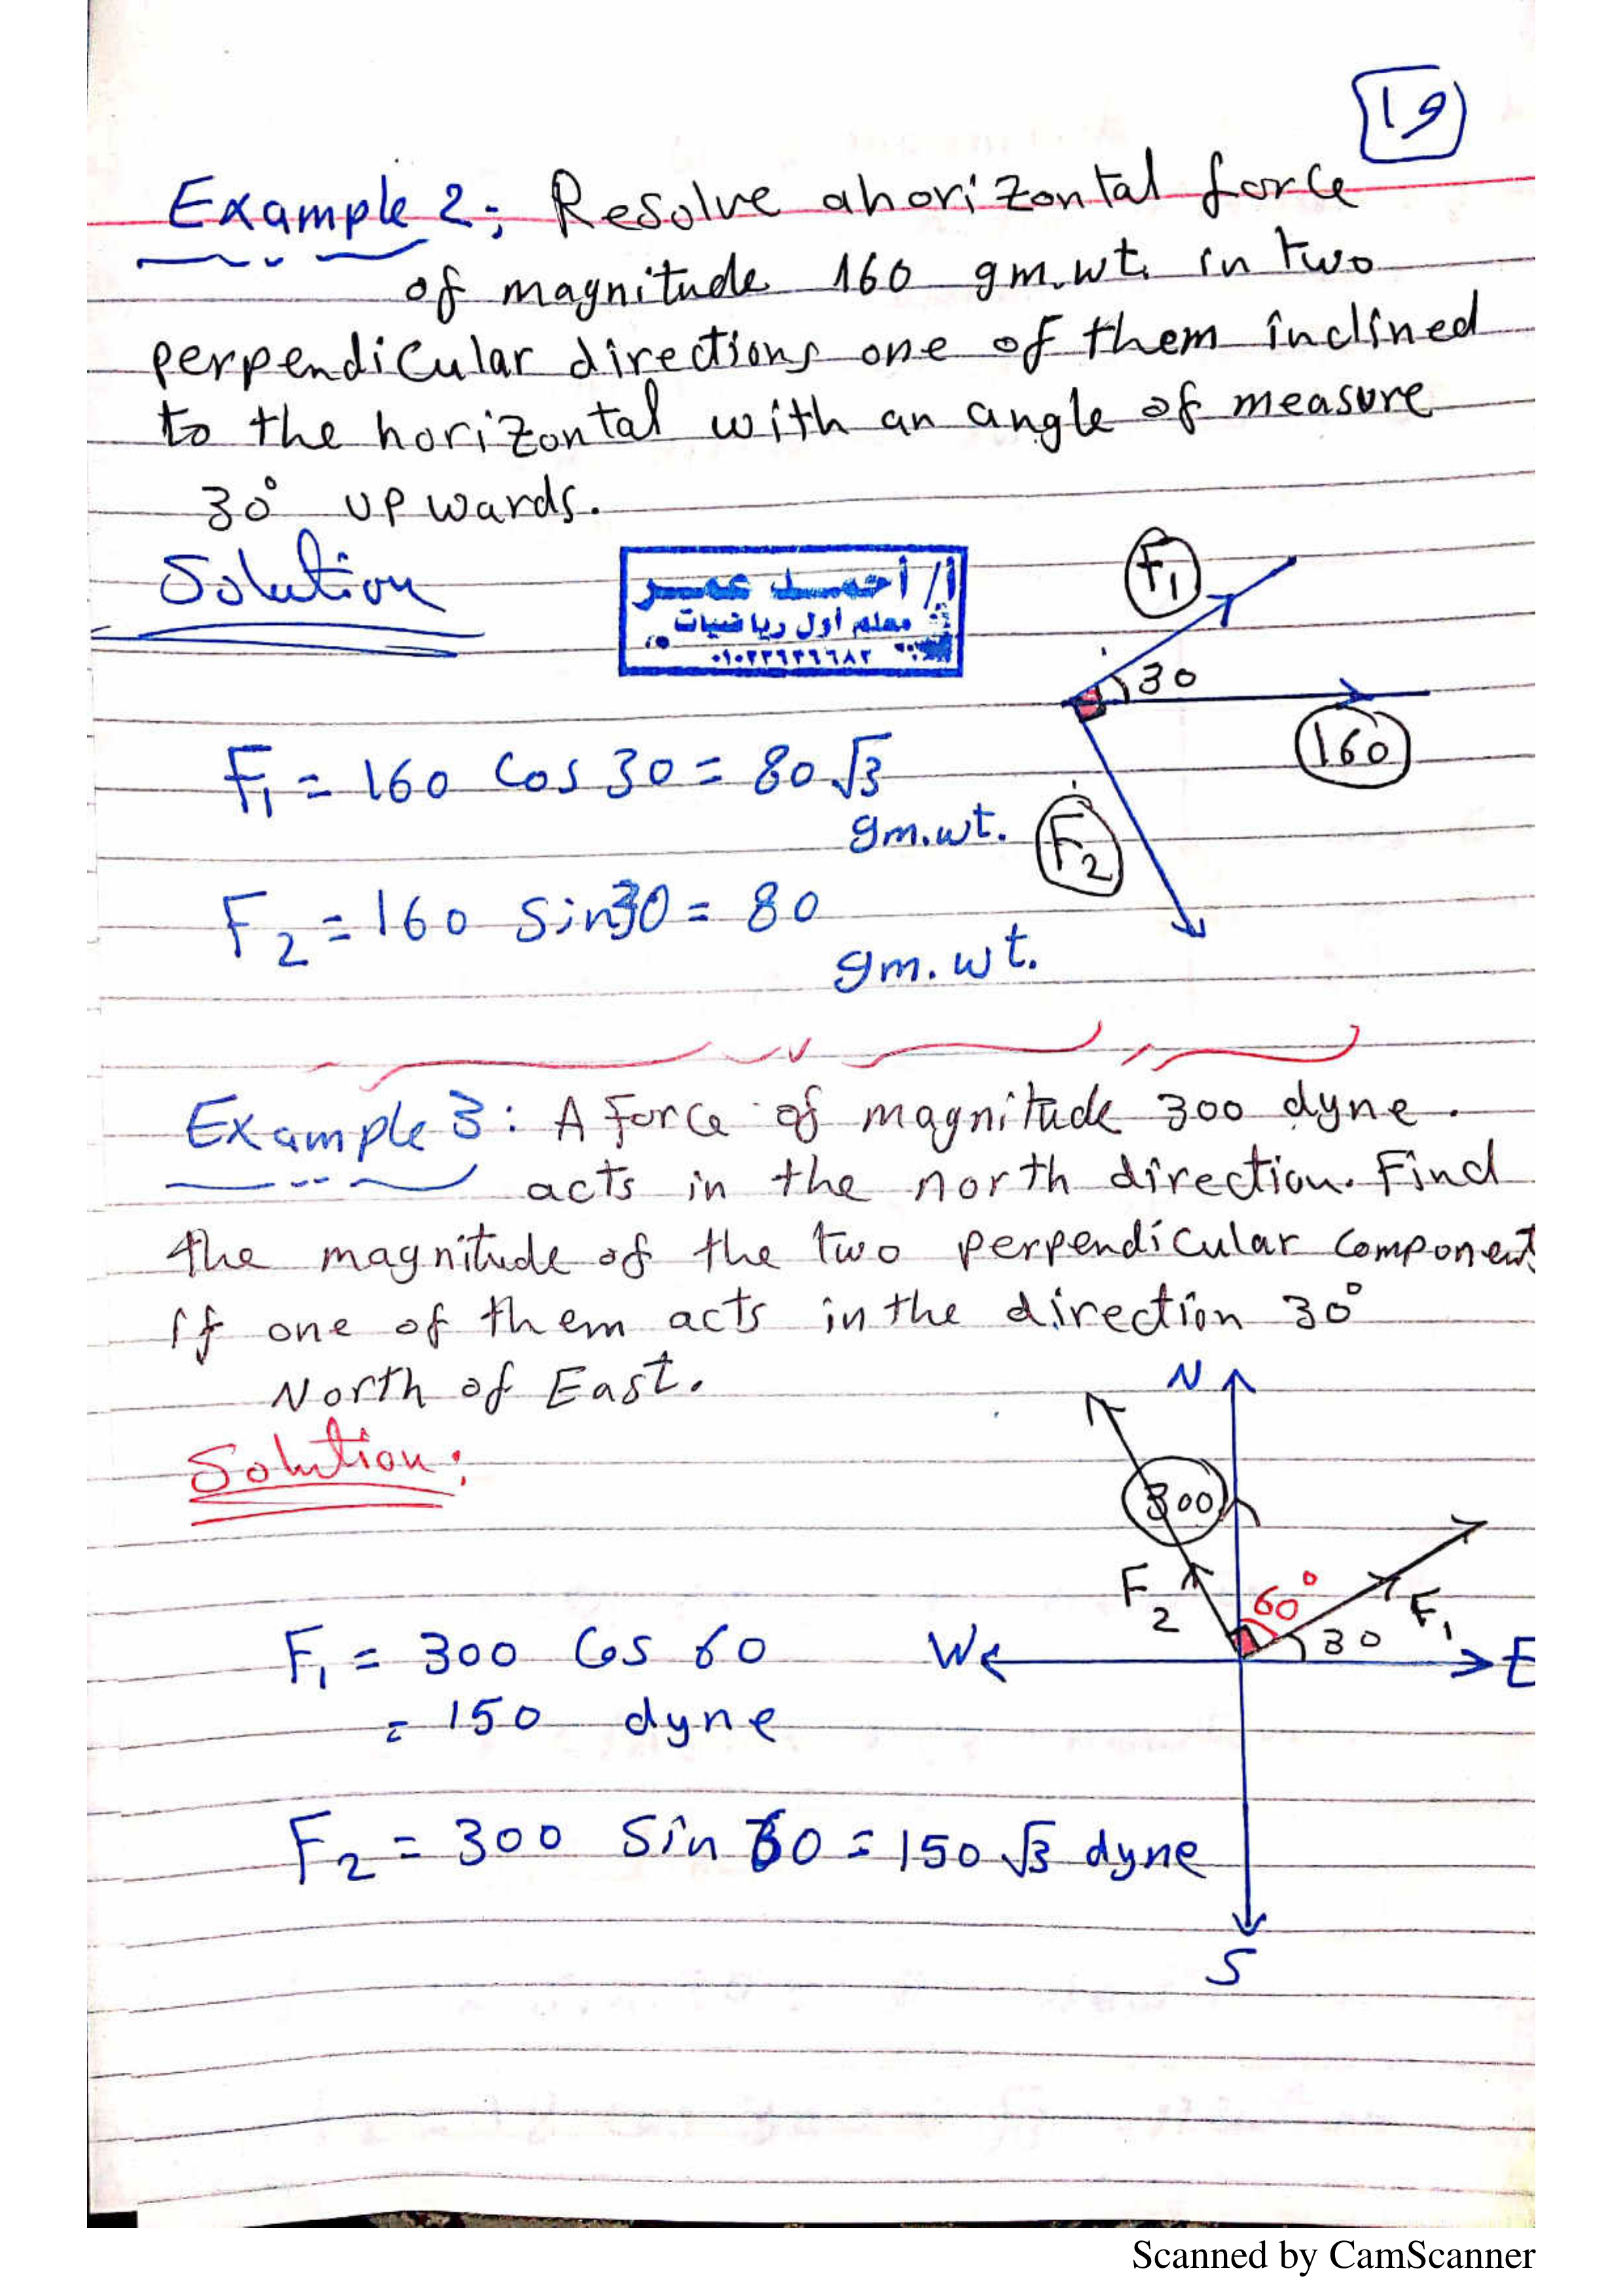 19
Example 2: Resolve a horizontal force
of magnitude 160 gm.wt. in two
perpendicular directions one of them inclined
to the horizontal with an angle of measure
30° upwards.
Solution
أ/ أحمد عمر
معلم أول رياضيات
F1
30
160
F1 = 160 Cos 30 = 80 √3
gm.wt.
F2
F2 = 160 Sin 30 = 80
gm.wt.
Example 3: A Force of magnitude 300 dyne.
acts in the north direction. Find
the magnitude of the two perpendicular component
If one of them acts in the direction 30°
North of East.
Solution:
N
300
F2
60°
F1
30
W
E
F1 = 300 Cos 60
= 150 dyne
F2 = 300 Sin 60 = 150 √3 dyne
S
Scanned by CamScanner